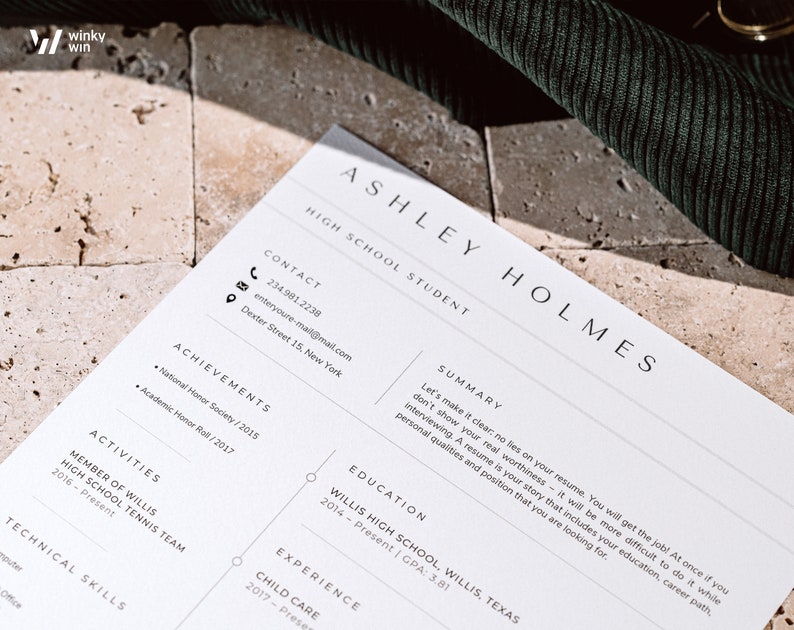 winky
win
ASHLEY HOLMES
HIGH SCHOOL STUDENT
CONTACT
234.981.2238
enteryoure-mail@mail.com
Dexter Street 15, New York
SUMMARY
Let's make it clear: no lies on your resume. You will get the job! At once if you
don't show your real worthiness – it will be more difficult to do it while
interviewing. A resume is your story that includes your education, career path,
personal qualities and position that you are looking for.
ACHIEVEMENTS
• National Honor Society / 2015
• Academic Honor Roll / 2017
ACTIVITIES
MEMBER OF WILLIS
HIGH SCHOOL TENNIS TEAM
2016 – Present
TECHNICAL SKILLS
Office
EDUCATION
WILLIS HIGH SCHOOL, WILLIS, TEXAS
2014 – Present | GPA: 3.81
EXPERIENCE
CHILD CARE
2017 – Present